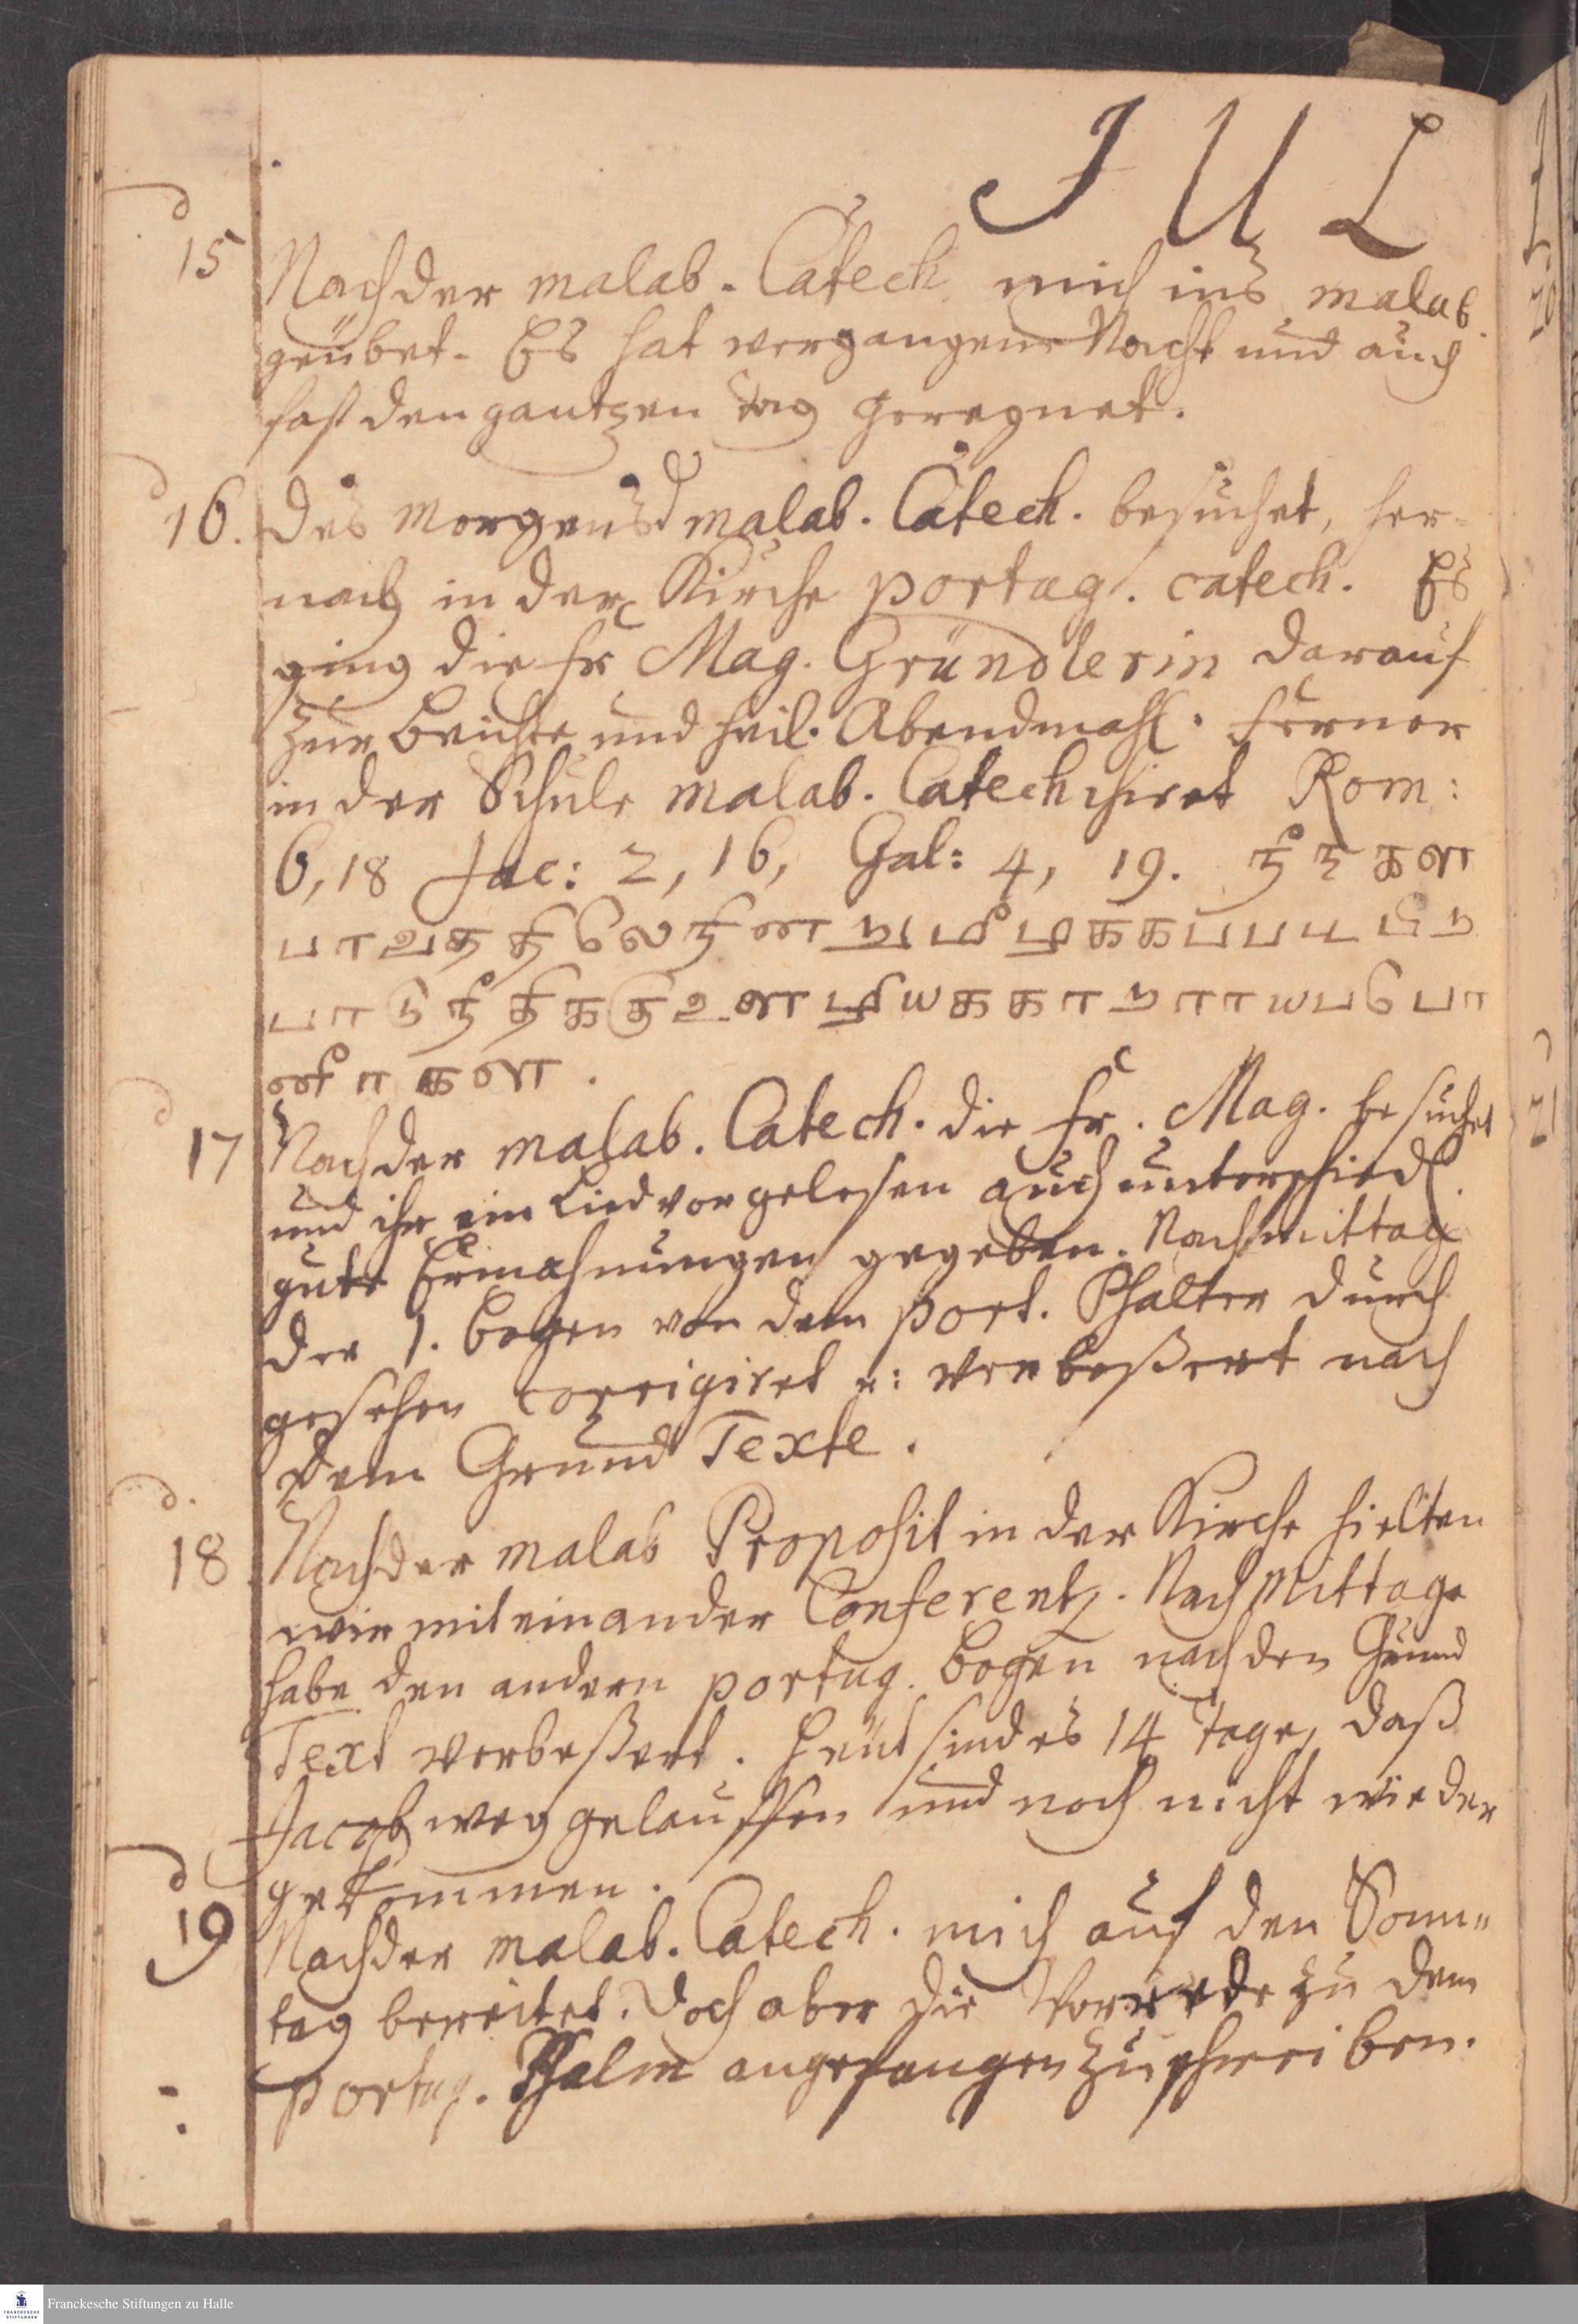 JUL
d
15 Nach der malab. Catech mich ins malab.
geübet. Es hat vergangene Nacht und auch
fast den gantzen Tag geregnet.
d
16. Des Morgens d malab. Catech. besuchet, her=
nach in der Kirche portug. catech. Es
ging die Fr Mag. Gründlerin darauf
zur Beichte und heil. Abendmahl. Ferner
in der Schule malab. Catechisiret Rom:
6, 18 Jac: 2, 16, Gal: 4, 19. நீ ந கள
பாவததிலேநினறுமீழககபபடடிற
பாடுநீதிககுஉளழியககாறராயபபோ
னீரகள.
d
17 Nach der malab. Catech. die Fr. Mag. besuchet
und ihr ein Lied vorgelesen auch unterschiedl.
gute Ermahnungen gegeben. Nachmittag
der 1. Bogen von dem port. Psalter durch
gesehen corrigiret u: verbeßert nach
dem Grund Texte.
d.
18 Nach der malab Proposit in der Kirche hielten
wir mit einander Conferentz. Nach Mittage
habe den andern portug. Bogen nach den Grund
Text verbeßert. Heut sind es 14 Tage, daß
Jacob weg gelauffen und noch nicht wieder
gekommen.
d
19 Nach der malab. Catech. mich auf den Sonn=
tag bereitet. Doch aber die Vorrede zu dem
portug. Psalm angefangen zu schreiben.
Franckesche Stiftungen zu Halle